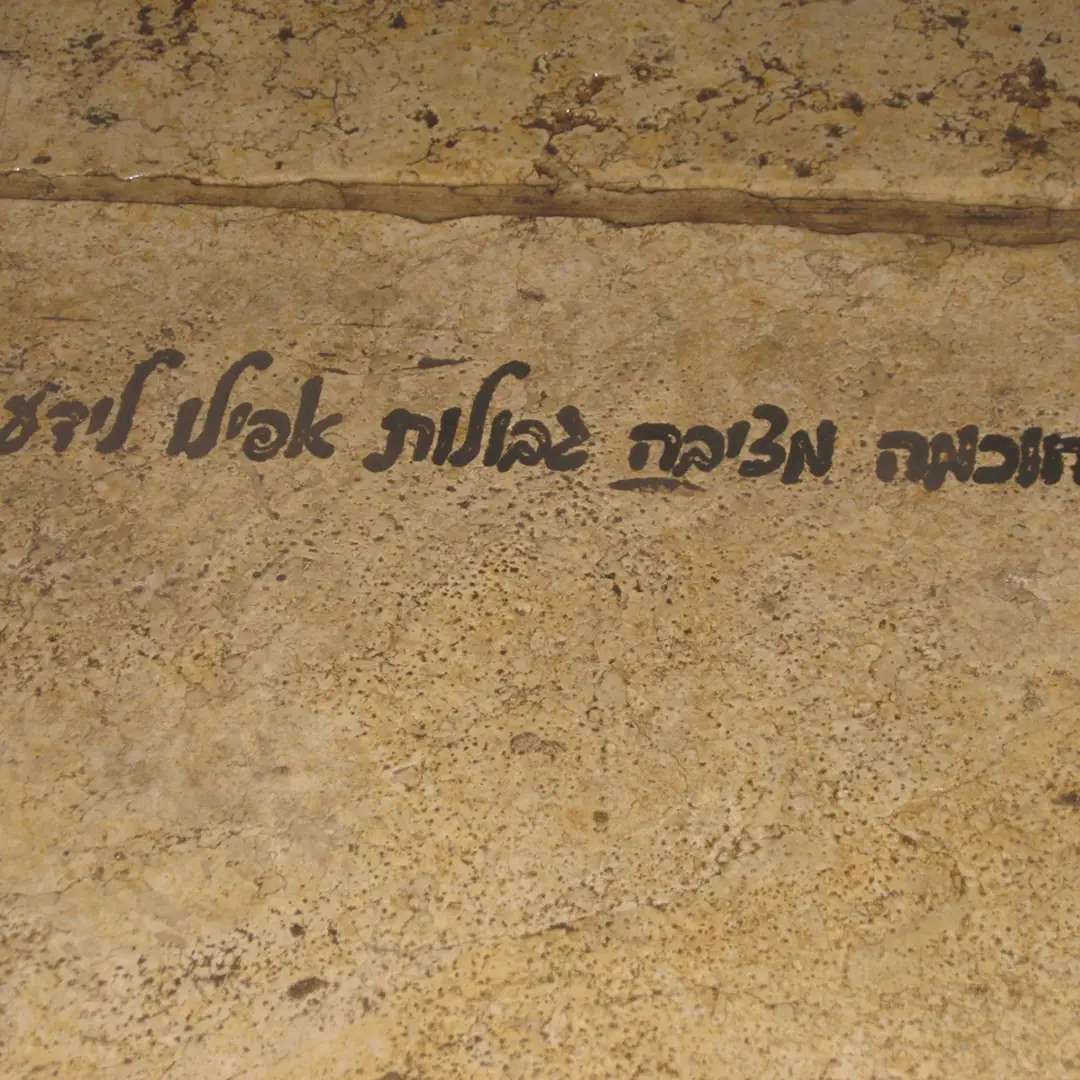 חוכמה מציבה גבולות אפילו לידע